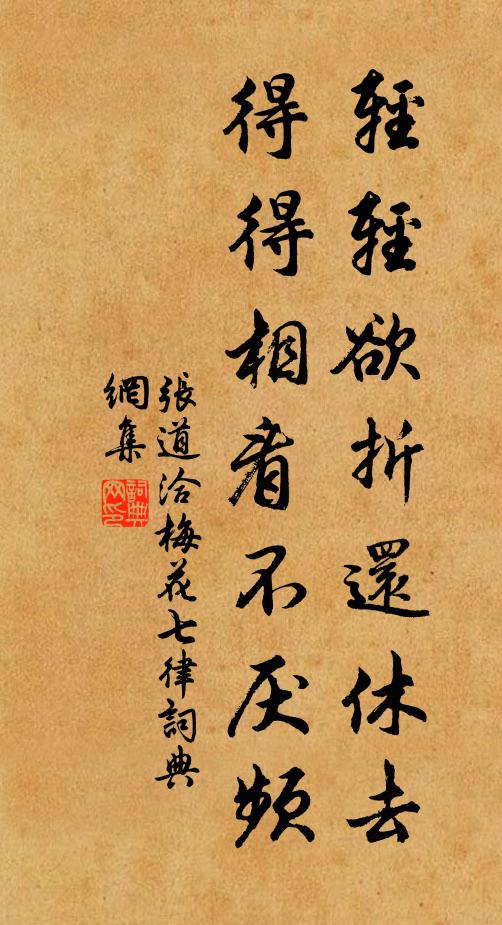 輕輕欲折還休去
得得相看不厌頻
張道洽梅花七律詞典
網集
詞典
网印